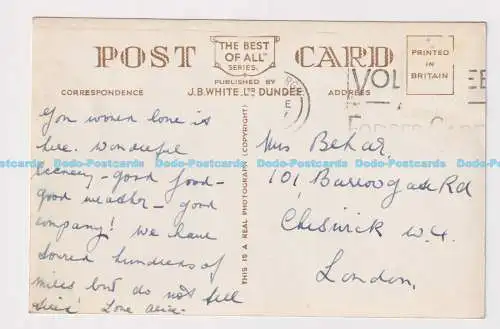 POST CARD
THE BEST
OF ALL
SERIES.
PUBLISHED BY
J.B. WHITE. LTD DUNDEE.
CORRESPONDENCE
ADDRESS
PRINTED
IN
BRITAIN
VOL EE
THIS IS A REAL PHOTOGRAPH (COPYRIGHT)
You would love it
here. Wonderful
scenery - good food -
good weather - good
company! We have
toured hundreds of
miles but do not feel
tired. Love
Mrs Behar,
101 Barrowgate Rd
Chiswick W.4.
London.
Dodo-Postcards Dodo-Postcards Dodo-Postcards Dodo-Postcards